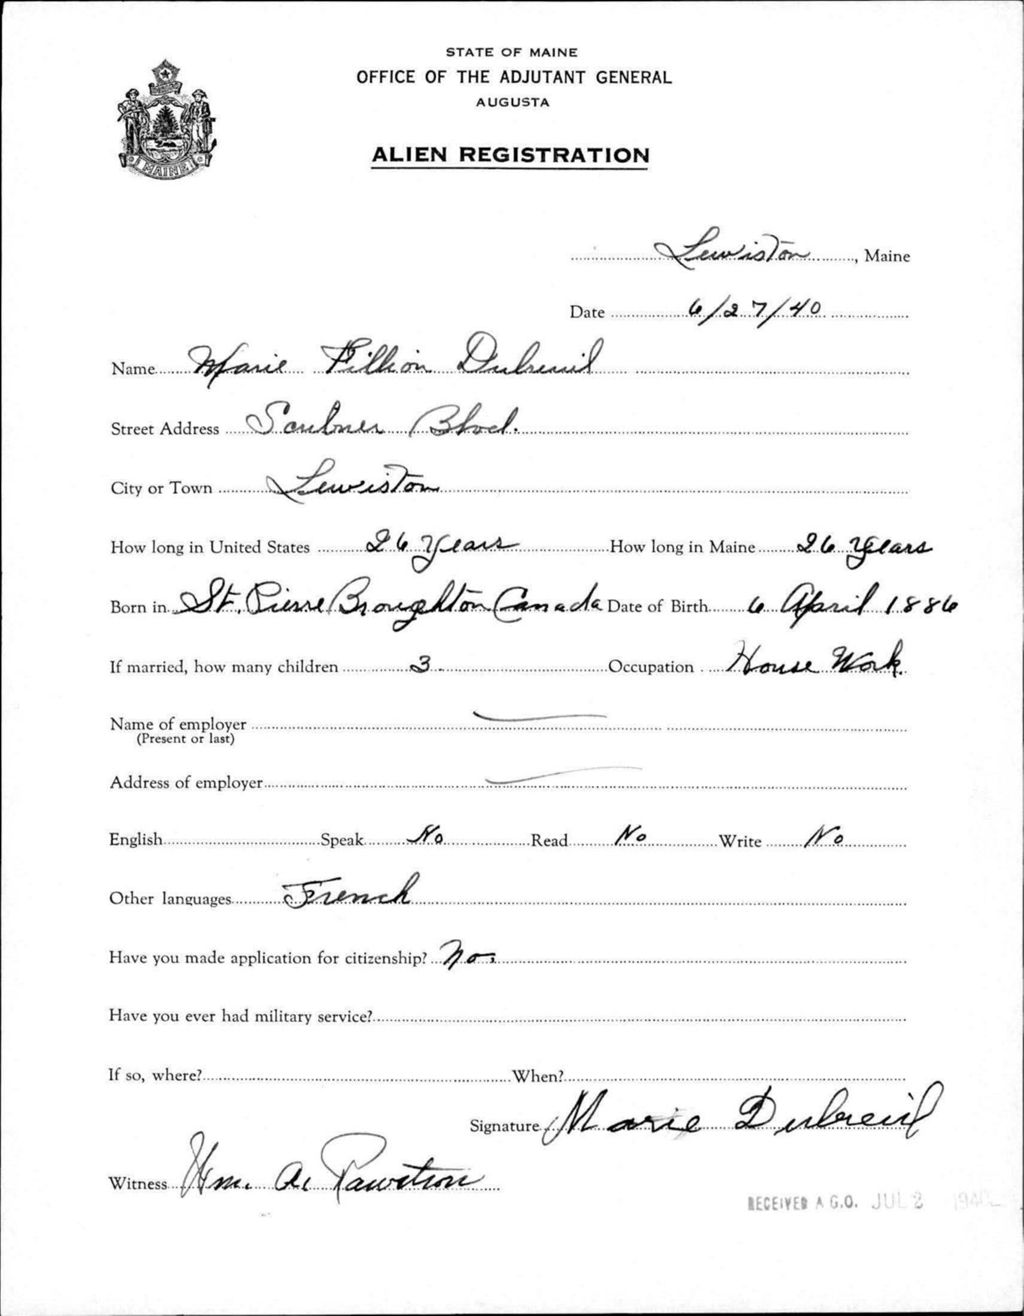 STATE OF MAINE
OFFICE OF THE ADJUTANT GENERAL
AUGUSTA
ALIEN REGISTRATION
MAINE
Lewiston, Maine
Date 6/27/40
Name Marie Fillion Dubreuil
Street Address Scribner Blvd.
City or Town Lewiston
How long in United States 26 Years How long in Maine 26 Years
Born in St. Pierre Broughton Canada Date of Birth 6 April 1886
If married, how many children 3 Occupation House Work.
Name of employer
(Present or last)
Address of employer
English Speak No Read No Write No
Other languages French
Have you made application for citizenship? No.
Have you ever had military service?
If so, where? When?
Signature Marie Dubreuil
Witness Wm. A.
RECEIVED A.G.O. JUL 2 1940